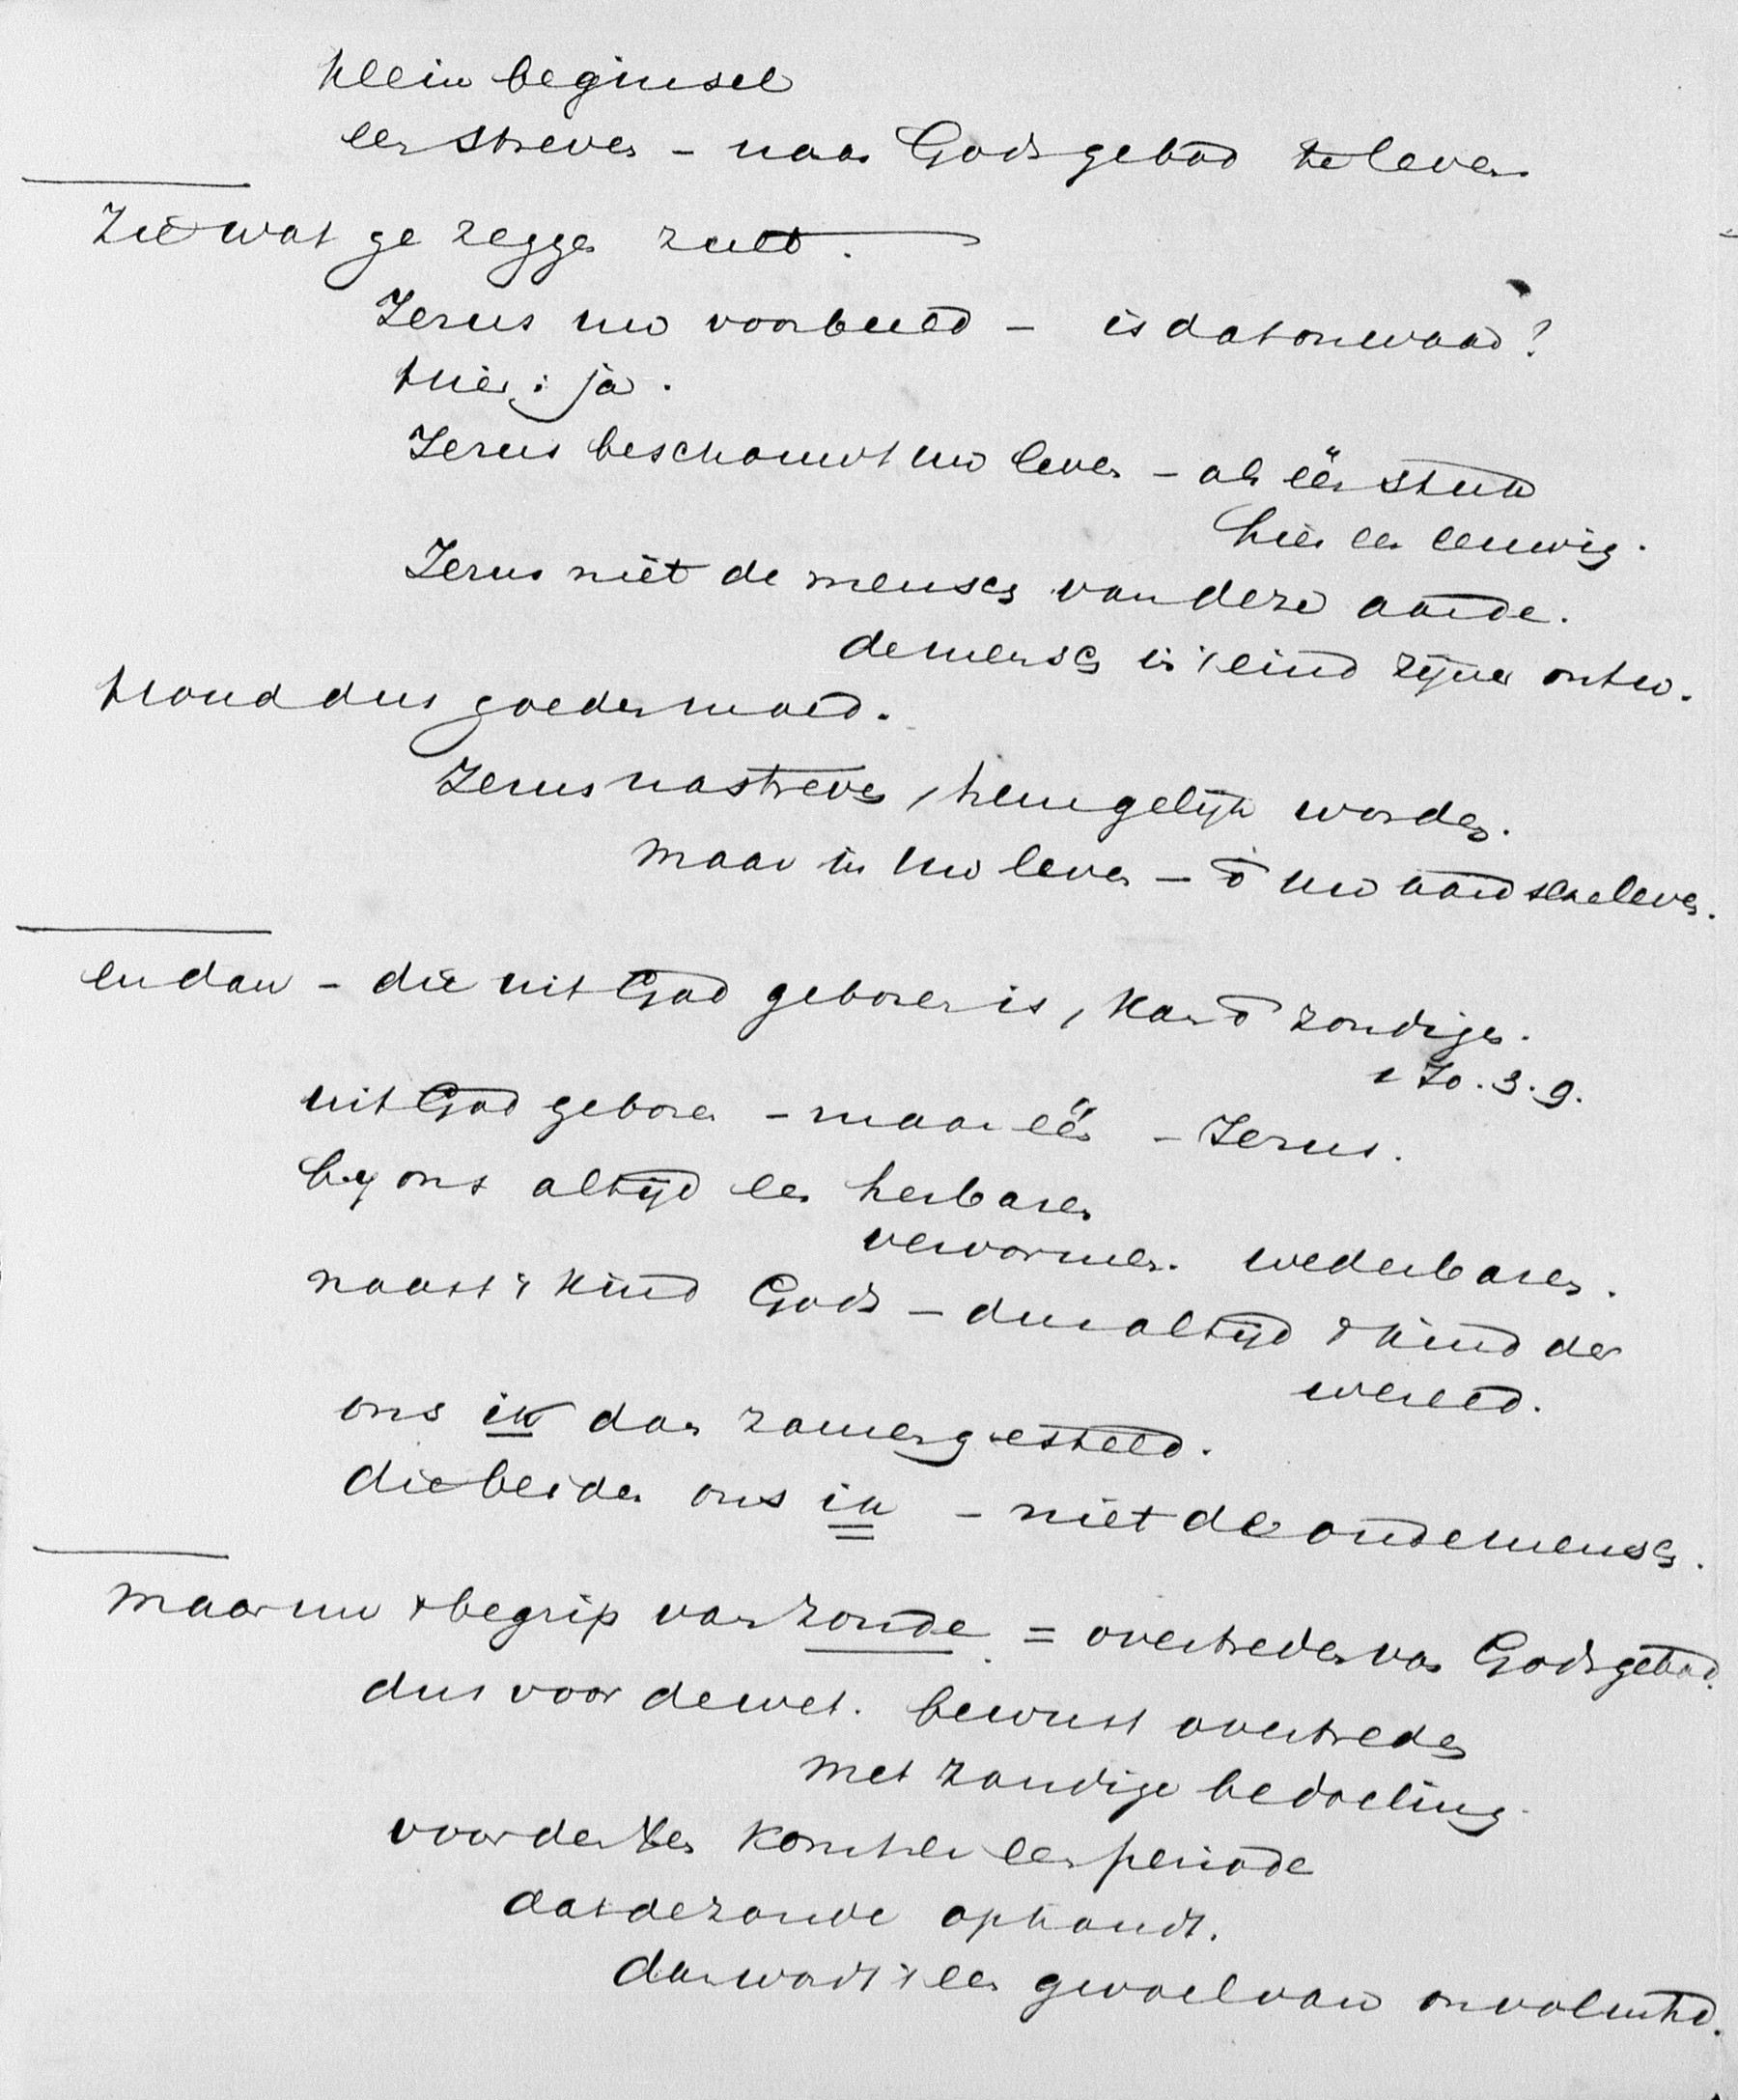 klein beginsel
een streven – naar Gods gebod te leven
Zie wat ge zeggen zult.
Jezus uw voorbeeld – is dat onwaar?
hier: ja.
Jezus beschouwt uw leven – als één stuk
hier en eeuwig.
Jezus niet de mensch van deze aarde.
de mensch in 't eind zijner ontw.
houd dus goeden moed.
Jezus nastreven, hem gelijk worden.
maar in uw leven – ō uw aardsche leven.
en dan – die uit God geboren is, kan ō zondigen.
1 Jo. 3.9.
uit God geboren – maar één – Jezus.
by ons altijd een herboren
vervormen. wederbaren.
naast 't kind Gods – dus altijd 't kind der
wereld.
ons ik dan zamengesteld.
die beiden ons ik – niet de oude mensch.
maar nu 't begrip van zonde = overtreden van Gods gebod.
dus voor de wet. bewust overtreden
met zondige bedoeling.
voor den komt er een periode
dat de zonde ophoudt.
dan wordt 't een gevoel van onvolmthd.